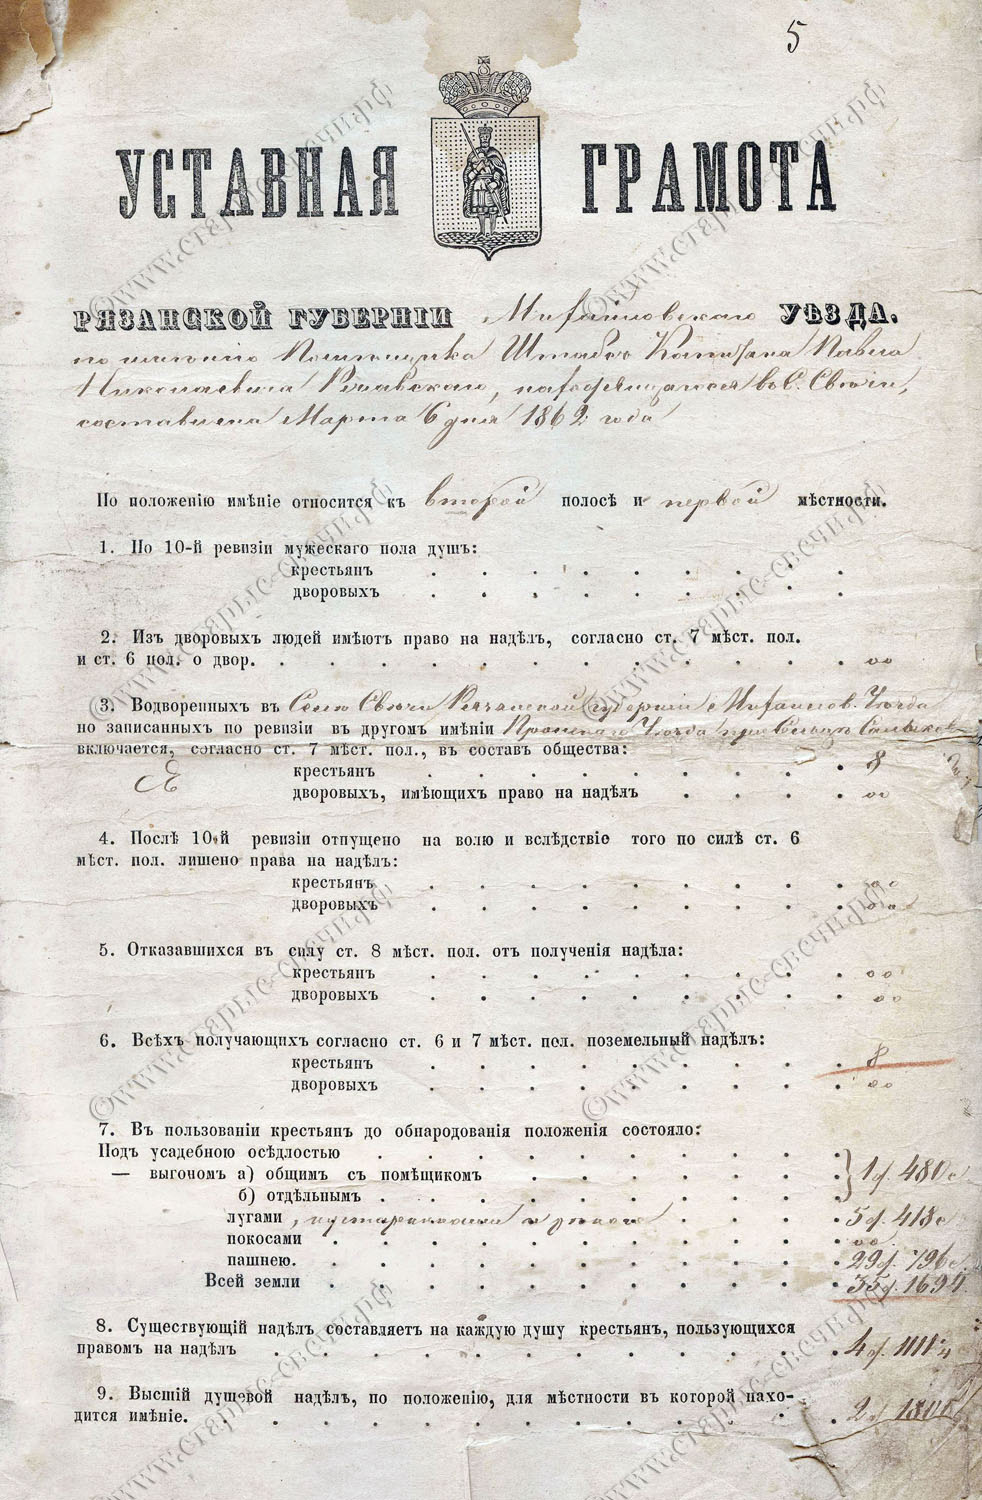 5
УСТАВНАЯ ГРАМОТА
РЯЗАНСКОЙ ГУБЕРНІИ Михайловскаго УѢЗДА.
по имѣнію Помѣщика Штабсъ Капитана Павла
Николаевича, находящагося въ С. Свѣчи,
составлена Марта 6 дня 1862 года
По положенію имѣніе относится къ второй полосѣ и первой мѣстности.
1. По 10-й ревизіи мужескаго пола душъ:
крестьянъ
дворовыхъ
2. Изъ дворовыхъ людей имѣютъ право на надѣлъ, согласно ст. 7 мѣст. пол.
и ст. 6 пол. о двор. оо
3. Водворенныхъ въ Селѣ Свѣчи Рязанской губерніи Михайлов. Уѣзда
но записанныхъ по ревизіи въ другомъ имѣніи Пронскаго Уѣзда при Сельцѣ
включается, согласно ст. 7 мѣст. пол., въ составъ общества:
крестьянъ 8
дворовыхъ, имѣющихъ право на надѣлъ оо
4. Послѣ 10-й ревизіи отпущено на волю и вслѣдствіе того по силѣ ст. 6
мѣст. пол. лишено права на надѣлъ:
крестьянъ оо
дворовыхъ оо
5. Отказавшихся въ силу ст. 8 мѣст. пол. отъ полученія надѣла:
крестьянъ оо
дворовыхъ оо
6. Всѣхъ получающихъ согласно ст. 6 и 7 мѣст. пол. поземельный надѣлъ:
крестьянъ 8
дворовыхъ оо
7. Въ пользованіи крестьянъ до обнародованія положенія состояло:
Подъ усадебною осѣдлостью
— выгономъ а) общимъ съ помѣщикомъ 1 д. 480 с
б) отдѣльнымъ
лугами, 5 д. 418 с
покосами оо
пашнею. 29 д. 796 с.
Всей земли 35 д. 1694
8. Существующій надѣлъ составляетъ на каждую душу крестьянъ, пользующихся
правомъ на надѣлъ 4 д. 1111
9. Высшій душевой надѣлъ, по положенію, для мѣстности въ которой нахо-
дится имѣніе. 2 д 1800
©www.старые-свечи.рф